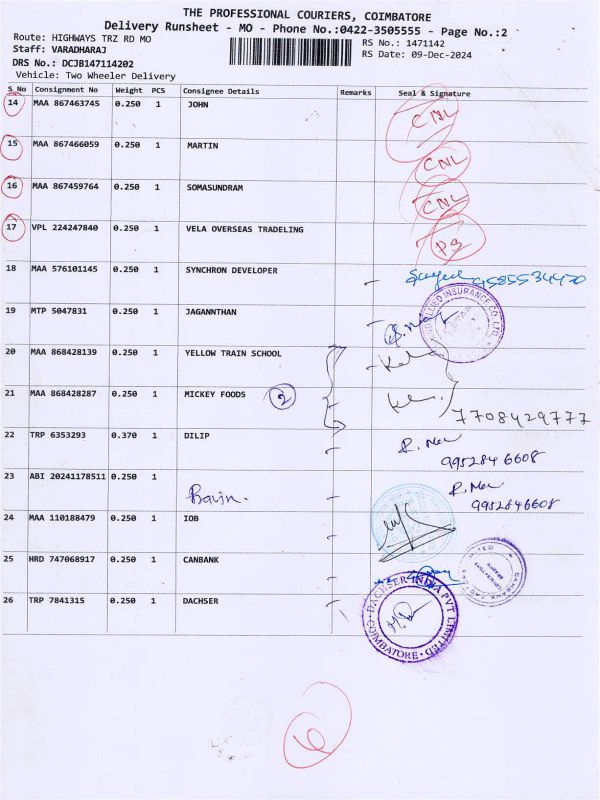 THE PROFESSIONAL COURIERS, COIMBATORE
Delivery Runsheet - MO - Phone No.:0422-3505555 - Page No.:2
Route: HIGHWAYS TRZ RD MO RS No.: 1471142
Staff: VARADHARAJ RS Date: 09-Dec-2024
DRS No.: DCJB147114202
Vehicle: Two Wheeler Delivery
S No Consignment No Weight PCS Consignee Details Remarks Seal & Signature
14 MAA 867463745 0.250 1 JOHN CNL
15 MAA 867466059 0.250 1 MARTIN CNL
16 MAA 867459764 0.250 1 SOMASUNDRAM CNL
17 VPL 224247840 0.250 1 VELA OVERSEAS TRADELING
18 MAA 576101145 0.250 1 SYNCHRON DEVELOPER 9585534470
19 MTP 5047831 0.250 1 JAGANNTHAN
20 MAA 868428139 0.250 1 YELLOW TRAIN SCHOOL
21 MAA 868428287 0.250 1 MICKEY FOODS 2 7708429777
22 TRP 6353293 0.370 1 DILIP
9952846608
23 ABI 20241178511 0.250 1
9952846608
24 MAA 110188479 0.250 1 IOB
25 HRD 747068917 0.250 1 CANBANK
26 TRP 7841315 0.250 1 DACHSER
DACHSER INDIA PVT LIMITED
COIMBATORE
6